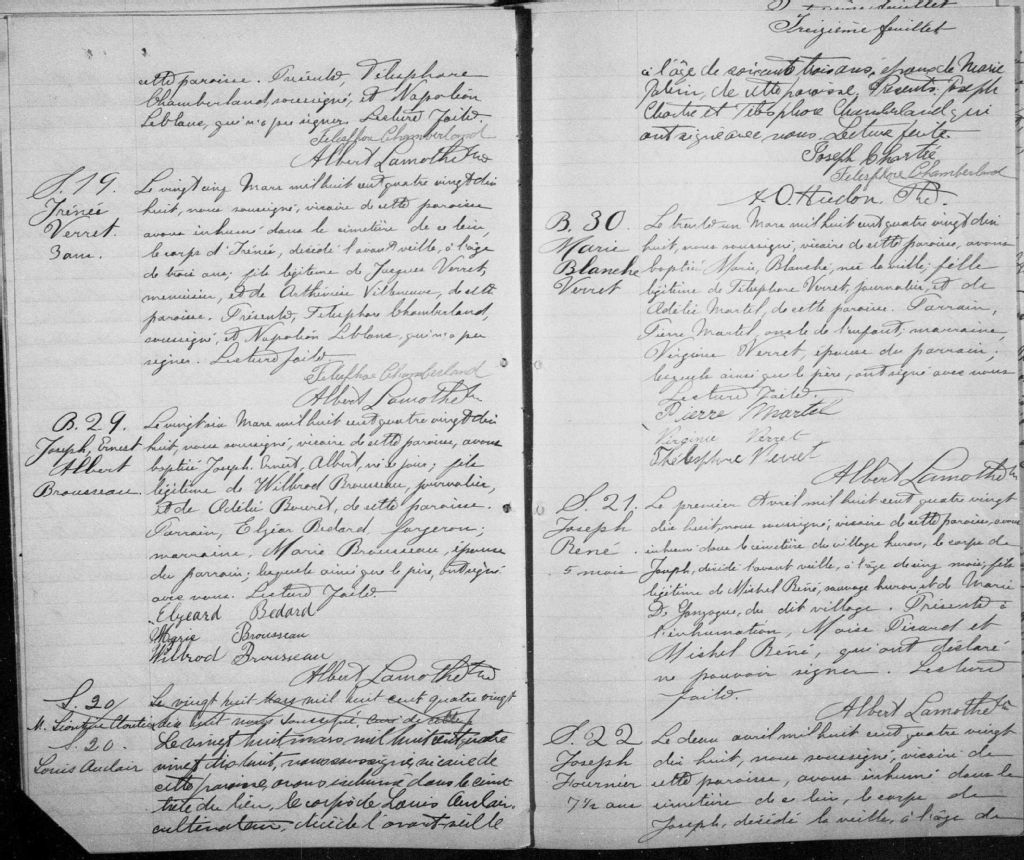 cette paroisse. Présents, Télesphore
Chamberland, soussigné, et Napoléon
Leblanc, qui n'a pu signer. Lecture faite.
Telesphore Chamberland
Albert Lamothe Ptre
S. 19.
Irénée
Verret.
3 ans.
Le vingt cinq Mars mil huit cent quatre vingt dix
huit, nous soussigné, vicaire de cette paroisse
avons inhumé dans le cimetière de ce lieu,
le corps d'Irénée, décédé l'avant veille, à l'âge
de trois ans; fils légitime de Jacques Verret,
menuisier, et de Arthémise Villeneuve, de cette
paroisse. Présents, Télesphore Chamberland,
soussigné, et Napoléon Leblanc, qui n'a pu
signer. Lecture faite.
Telesphore Chamberland
Albert Lamothe Ptre
B. 29
Joseph, Ernest
Albert
Brousseau.
Le vingt six Mars mil huit cent quatre vingt dix
huit, nous soussigné, vicaire de cette paroisse, avons
baptisé Joseph, Ernest, Albert, né ce jour; fils
légitime de Wilbrod Brousseau, journalier,
et de Adélie Bouret, de cette paroisse.
Parrain, Elzéar Bedard forgeron;
marraine, Marie Brousseau, épouse
du parrain; lesquels ainsi que le père, ont signé
avec nous. Lecture faite.
Elzeard Bedard
Marie Brousseau
Wilbrod Brousseau
Albert Lamothe Ptre
S. 20
Le vingt huit Mars mil huit cent quatre vingt
dix huit nous soussigné, curé de
S. 20.
Louis Auclair
Le vingt huit mars mil huit cent quatre
vingt dix huit, nous soussigné, vicaire de
cette paroisse, avons inhumé dans le cime-
tière du lieu, le corps de Louis Auclair,
cultivateur, décédé l'avant veille
Treizième feuillet
à l'âge de soixante trois ans, époux de Marie
de cette paroisse, Présents Joseph
Chartré et Télesphore Chamberland qui
ont signé avec nous. Lecture faite.
Joseph Chartré
Telesphore Chamberland
A. O. Hudon Ptre.
B. 30
Marie
Blanche
Verret
Le trente un Mars mil huit cent quatre vingt dix
huit, nous soussigné, vicaire de cette paroisse, avons
baptisé Marie, Blanche, née la veille; fille
légitime de Télesphore Verret, journalier, et de
Adélie Martel, de cette paroisse. Parrain,
Pierre Martel, oncle de l'enfant; marraine,
Virginie Verret, épouse du parrain;
lesquels ainsi que le père, ont signé avec nous
Lecture faite.
Pierre Martel
Virginie Verret
Thélesphore Verret
Albert Lamothe Ptre
S. 21.
Joseph
René
5 mois
Le premier Avril mil huit cent quatre vingt
dix huit, nous soussigné, vicaire de cette paroisse, avons
inhumé dans le cimetière du village huron, le corps de
Joseph, décédé l'avant veille, à l'âge de cinq mois; fils
légitime de Michel Réné, sauvage huron, et de Marie
De Gonzague, du dit village. Présents à
l'inhumation, Moise Picard et
Michel Réné, qui ont déclaré
ne pouvoir signer. Lecture
faite.
Albert Lamothe Ptre
S. 22
Joseph
Fournier
7 1/2 ans
Le deux avril mil huit cent quatre vingt
dix huit, nous soussigné, vicaire de
cette paroisse, avons inhumé dans le
cimetière de ce lieu, le corps de
Joseph, décédé la veille, à l'âge de